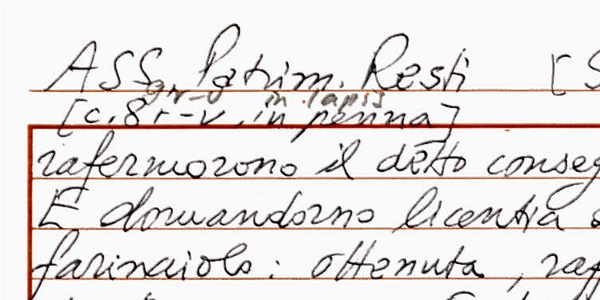 ASS, Patrim. Resti [S
9r-v in lapis
[c. 8r-v, in penna]
rafermorono il detto conseg
E domandorno licentia
farinaiolo: ottenuta, raf